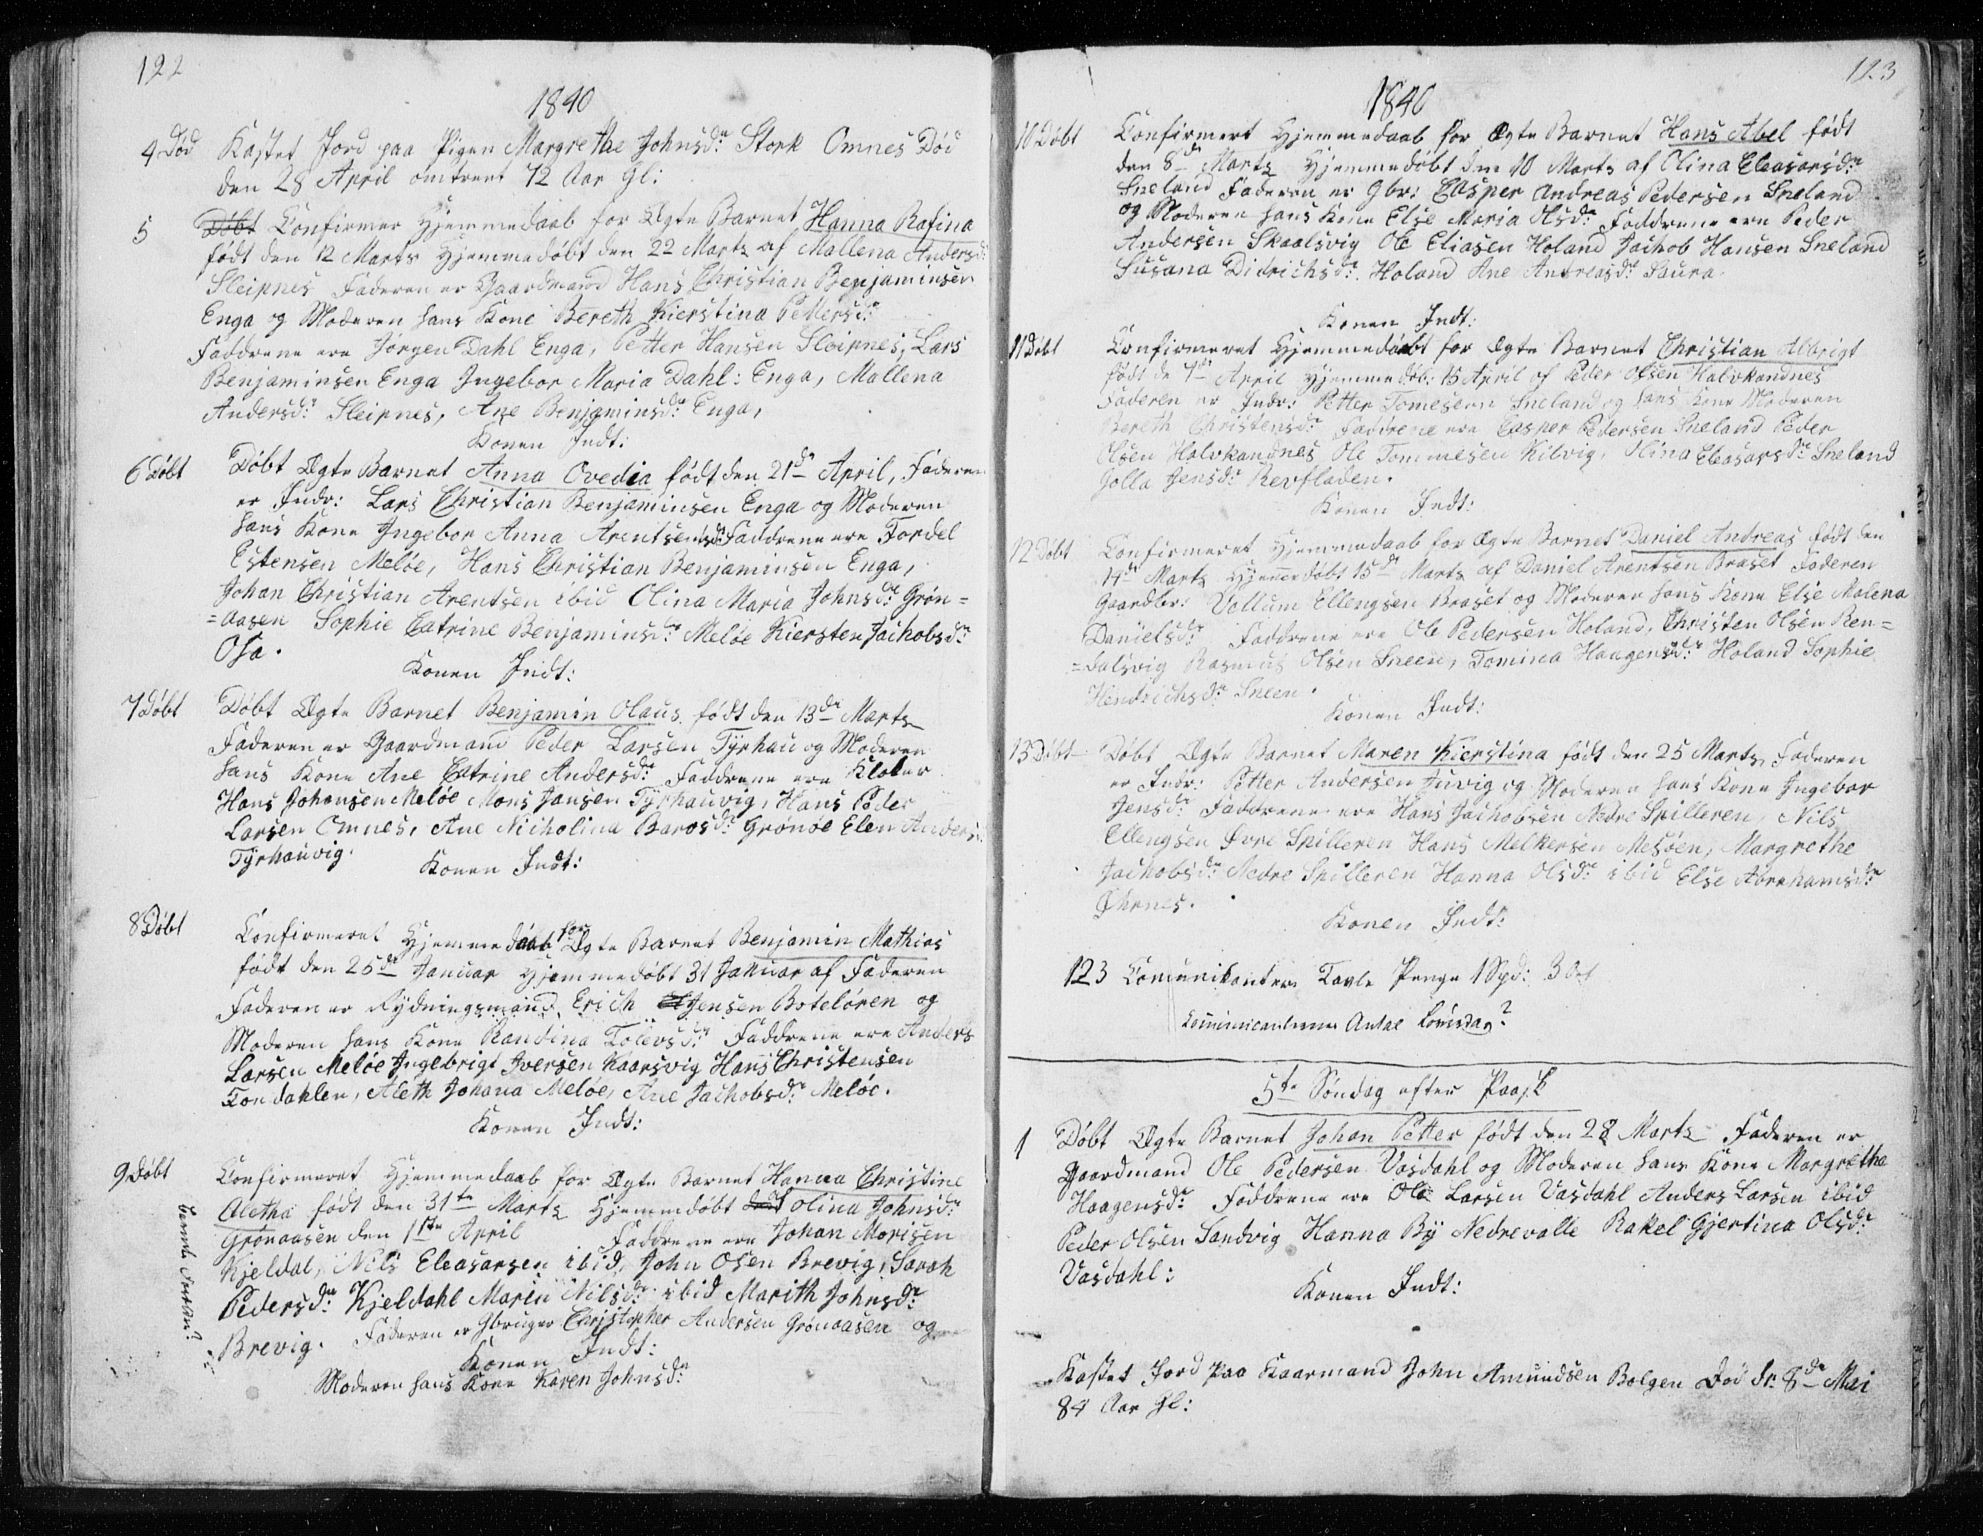 122
1840
4 Død Kastet Jord paa Pigen Margrethe Johnsdr: Stork Omnes Død
den 28 April omtrent 72 Aar Gl:
5 Døbt Confirmer Hjemmedaab for Ægte Barnet Hanna Rafina
født den 12 Marts Hjemmedøbt den 22 Marts af Mallena Andersdr:
Sleipnes Faderen er Gaardmand Hans Christian Benjaminsen
Enga og Moderen hans Kone Bereth Kierstina Pettersdr:
Faddrene ere Jørgen Dahl Enga, Petter Hansen Sleipnes, Lars
Benjaminsen Enga Ingebor Maria Dahl: Enga, Mallena
Andersdr: Sleipnes, Ane Benjaminsdr: Enga,
Konen Indt:
6 Døbt Døbt Ægte Barnet Anna Ovedia født den 21de April, Faderen
er Indr: Lars Christian Benjaminsen Enga og Moderen
hans Kone Ingebor Anna Arentsensdr Faddrene ere Tordel
Estensen Meløe, Hans Christian Benjaminsen Enga,
Johan Christian Arentsen ibid Olina Maria Johnsdr: Grøn=
=aasen Sophie Catrine Benjaminsdr: Meløe Kiersten Jachobsdr:
Osa.
Konen Indt:
7 Døbt Døbt Ægte Barnet Benjamin Olaus født den 13de Marts
Faderen er Gaardmand Peder Larsen Tyrhau og Moderen
hans Kone Ane Catrine Andersdr: Faddrene ere Kloker
Hans Johansen Meløe Mons Jansen Tyrhauvig, Hans Peder
Larsen Omnes, Ane Nicholina Barosdr: Grønøe Elen Anders
Tyrhauvig.
Konen Indt:
8 Døbt Confirmeret Hjemmedaab for Ægte Barnet Benjamin Mathias
født den 25de Januar Hjemmedøbt 31 Januar af Faderen
Faderen er Rydningsmand Erich Jensen Boteløren og
Moderen hans Kone Randina Tolevsdr: Faddrene ere Anders
Larsen Meløe Ingebrigt Iversen Kaarsvig Hans Christensen
Tondahlen, Aleth Johana Meløe, Ane Jachobsdr: Meløe.
Konen Indt:
9 Døbt Confirmeret Hjemmedaab for Ægte Barnet Hanna Christine
Aletha født den 31te Marts Hjemmdøbt Olina Johnsdr:
Grønaasen den 1ste April Faddrene ere Johan Morisen
Kjeldal, Nils Eleasarsen ibid, John Osen Brevig, Sarah
Pedersdr: Kjeldahl Maren Nilsdr: ibid Marith Johnsdr:
Brevig. Faderen er Gbruger Christopher Andersen Grønaasen og
Konen Indt:
Moderen hans Kone Karen Johnsdr:
123
1840
10 Døbt Confirmert Hjemmedaab for Ægte Barnet Hans Abel født
den 8de Marts Hjemmedøbt den 10 Marts af Olina Eleasarsdr:
Sneland Faderen er Gbr: Casper Andreas Pedersen Sneland
og Moderen hans Kone Else Maria Olsdr: Faddrene ere Peder
Andersen Skaalsvig Ole Eliasen Holand Jachob Hansen Sneland
Susana Didrichsdr: Holand Ane Andreasdr: Saura
Konen Indt:
11 Døbt Confirmeret Hjemmedaabt for Ægte Barnet Christian Albrigt
født de 7de April Hjemmedøb: 15 April af Peder Olsen Halvkandnes
Faderen er Indr: Petter Tomesen Sneland og hans Kone Moderen
Bereth Christensdr: Faddrene ere Casper Pedersen Sneland Peder
Olsen Halvkandnes Ole Tommesen Kilvig, Olina Eleasarsdr: Sneland
Golla Jensdr: Revfladen.
Konen Indt:
12 Døbt Confirmeret Hjemmedaab for Ægte Barnet Daniel Andreas født den
14de Marts Hjemmedøbt 15de Marts af Daniel Arentsen Braset Faderen
Gaardbr: Vollum Ellengsen Braset og Moderen hans Kone Else Malena
Danielsdr: Faddrene ere Ole Pedersen Holand, Christen Olsen Ren=
=dalsvig Rasmus Olsen Sneen, Tomina Haagensdr: Holand Sophie
Hendrichsdr: Sneen.
Konen Indt:
13 Døbt Døbt Ægte Barnet Maren Kierstina født den 25 Marts Faderen
er Indr: Petter Andersen Juvig og Moderen hans Kone Ingebor
Jensdr: Faddrene ere Hans Jachobsen Nedre Spilleren, Nils
Ellengsen Øvre Spilleren Hans Melkersen Mesøen, Margrethe
Jachobsdr: Nedre Spilleren Hanna Olsdr: ibid Else Abrahamsdr:
Øhrnes.
Konen Indt:
123 Comunikanter Tavle Penge 1 Spd: 3 Ort
Communicanternes Antal Lovisdag?
5te Søndag efter Paask
1 Døbt Ægte Barnet Johan Petter født den 28 Marts Faderen er
Gaardmand Ole Pedersen Vasdahl og Moderen hans Kone Margrethe
Haagensdr: Faddrene ere Ole Larsen Vasdahl Anders Larsen ibid
Peder Olsen Sandvig Hanna By Nedrevalle Rakel Gjertina Olsdr:
Vasdahl:
Konen Indt:
Kastet Jord paa Kaarmand John Amundsen Bolgen Død dn. 8de Mai
84 Aar Gl: